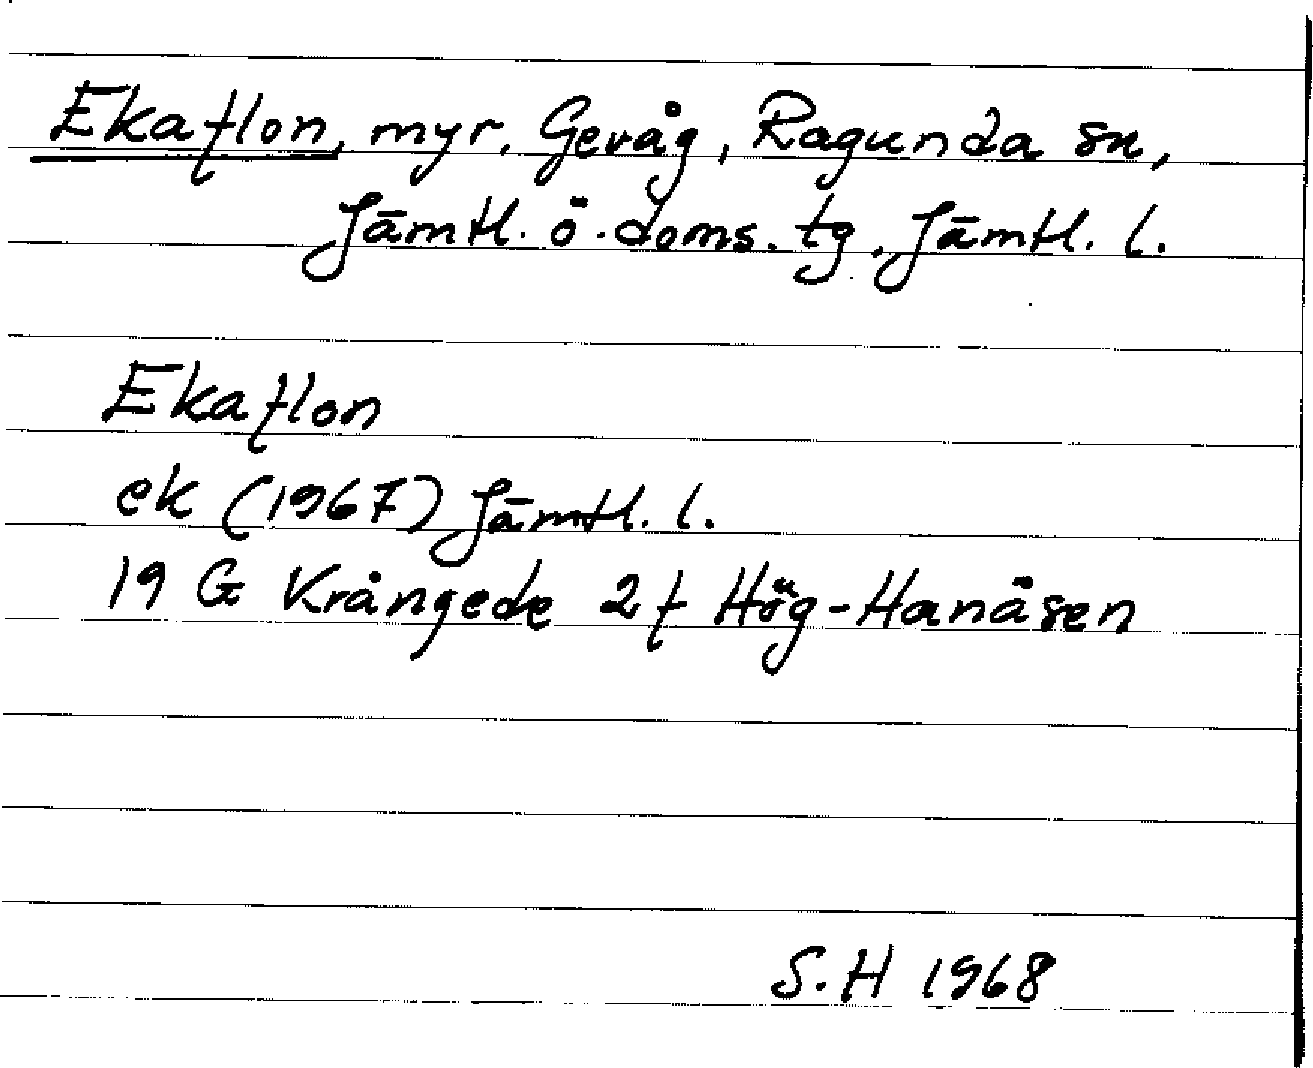 Ekaflon, myr, Gevåg, Ragunda sn,
Jämtl. ö. doms. tg. Jämtl. l.
Ekaflon
ek (1967) Jämtl. l.
19 G Krångede 2f Hög-Hanåsen
S.H 1968